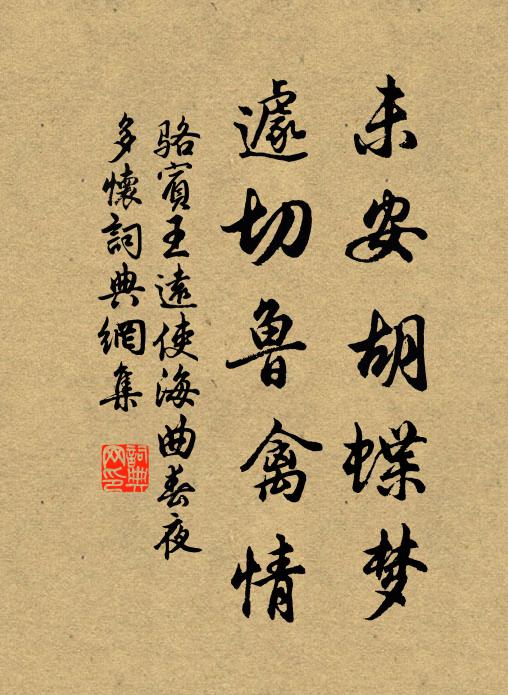 未安胡蝶梦
遽切魯禽情
骆賓王遠使海曲春夜
多懷詞典網集
詞典网印